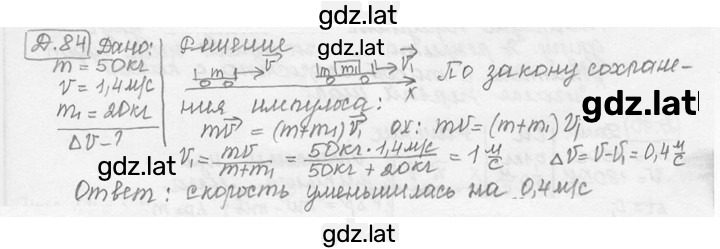 gdz.lat
Д.84 Дано: Решение
m = 50кг
v = 1,4м/с
m₁ = 20кг
Δv - ?
m v⃗ m m₁ v⃗₁ x
По закону сохране-
ния импульса:
gdz.lat
mv⃗ = (m+m₁)v⃗₁ ox: mv = (m+m₁)v₁
v₁ = mv/(m+m₁) = (50кг · 1,4м/с)/(50кг + 20кг) = 1 м/с Δv = v - v₁ = 0,4 м/с
gdz.lat
Ответ: скорость уменьшилась на 0,4м/с
gdz.lat